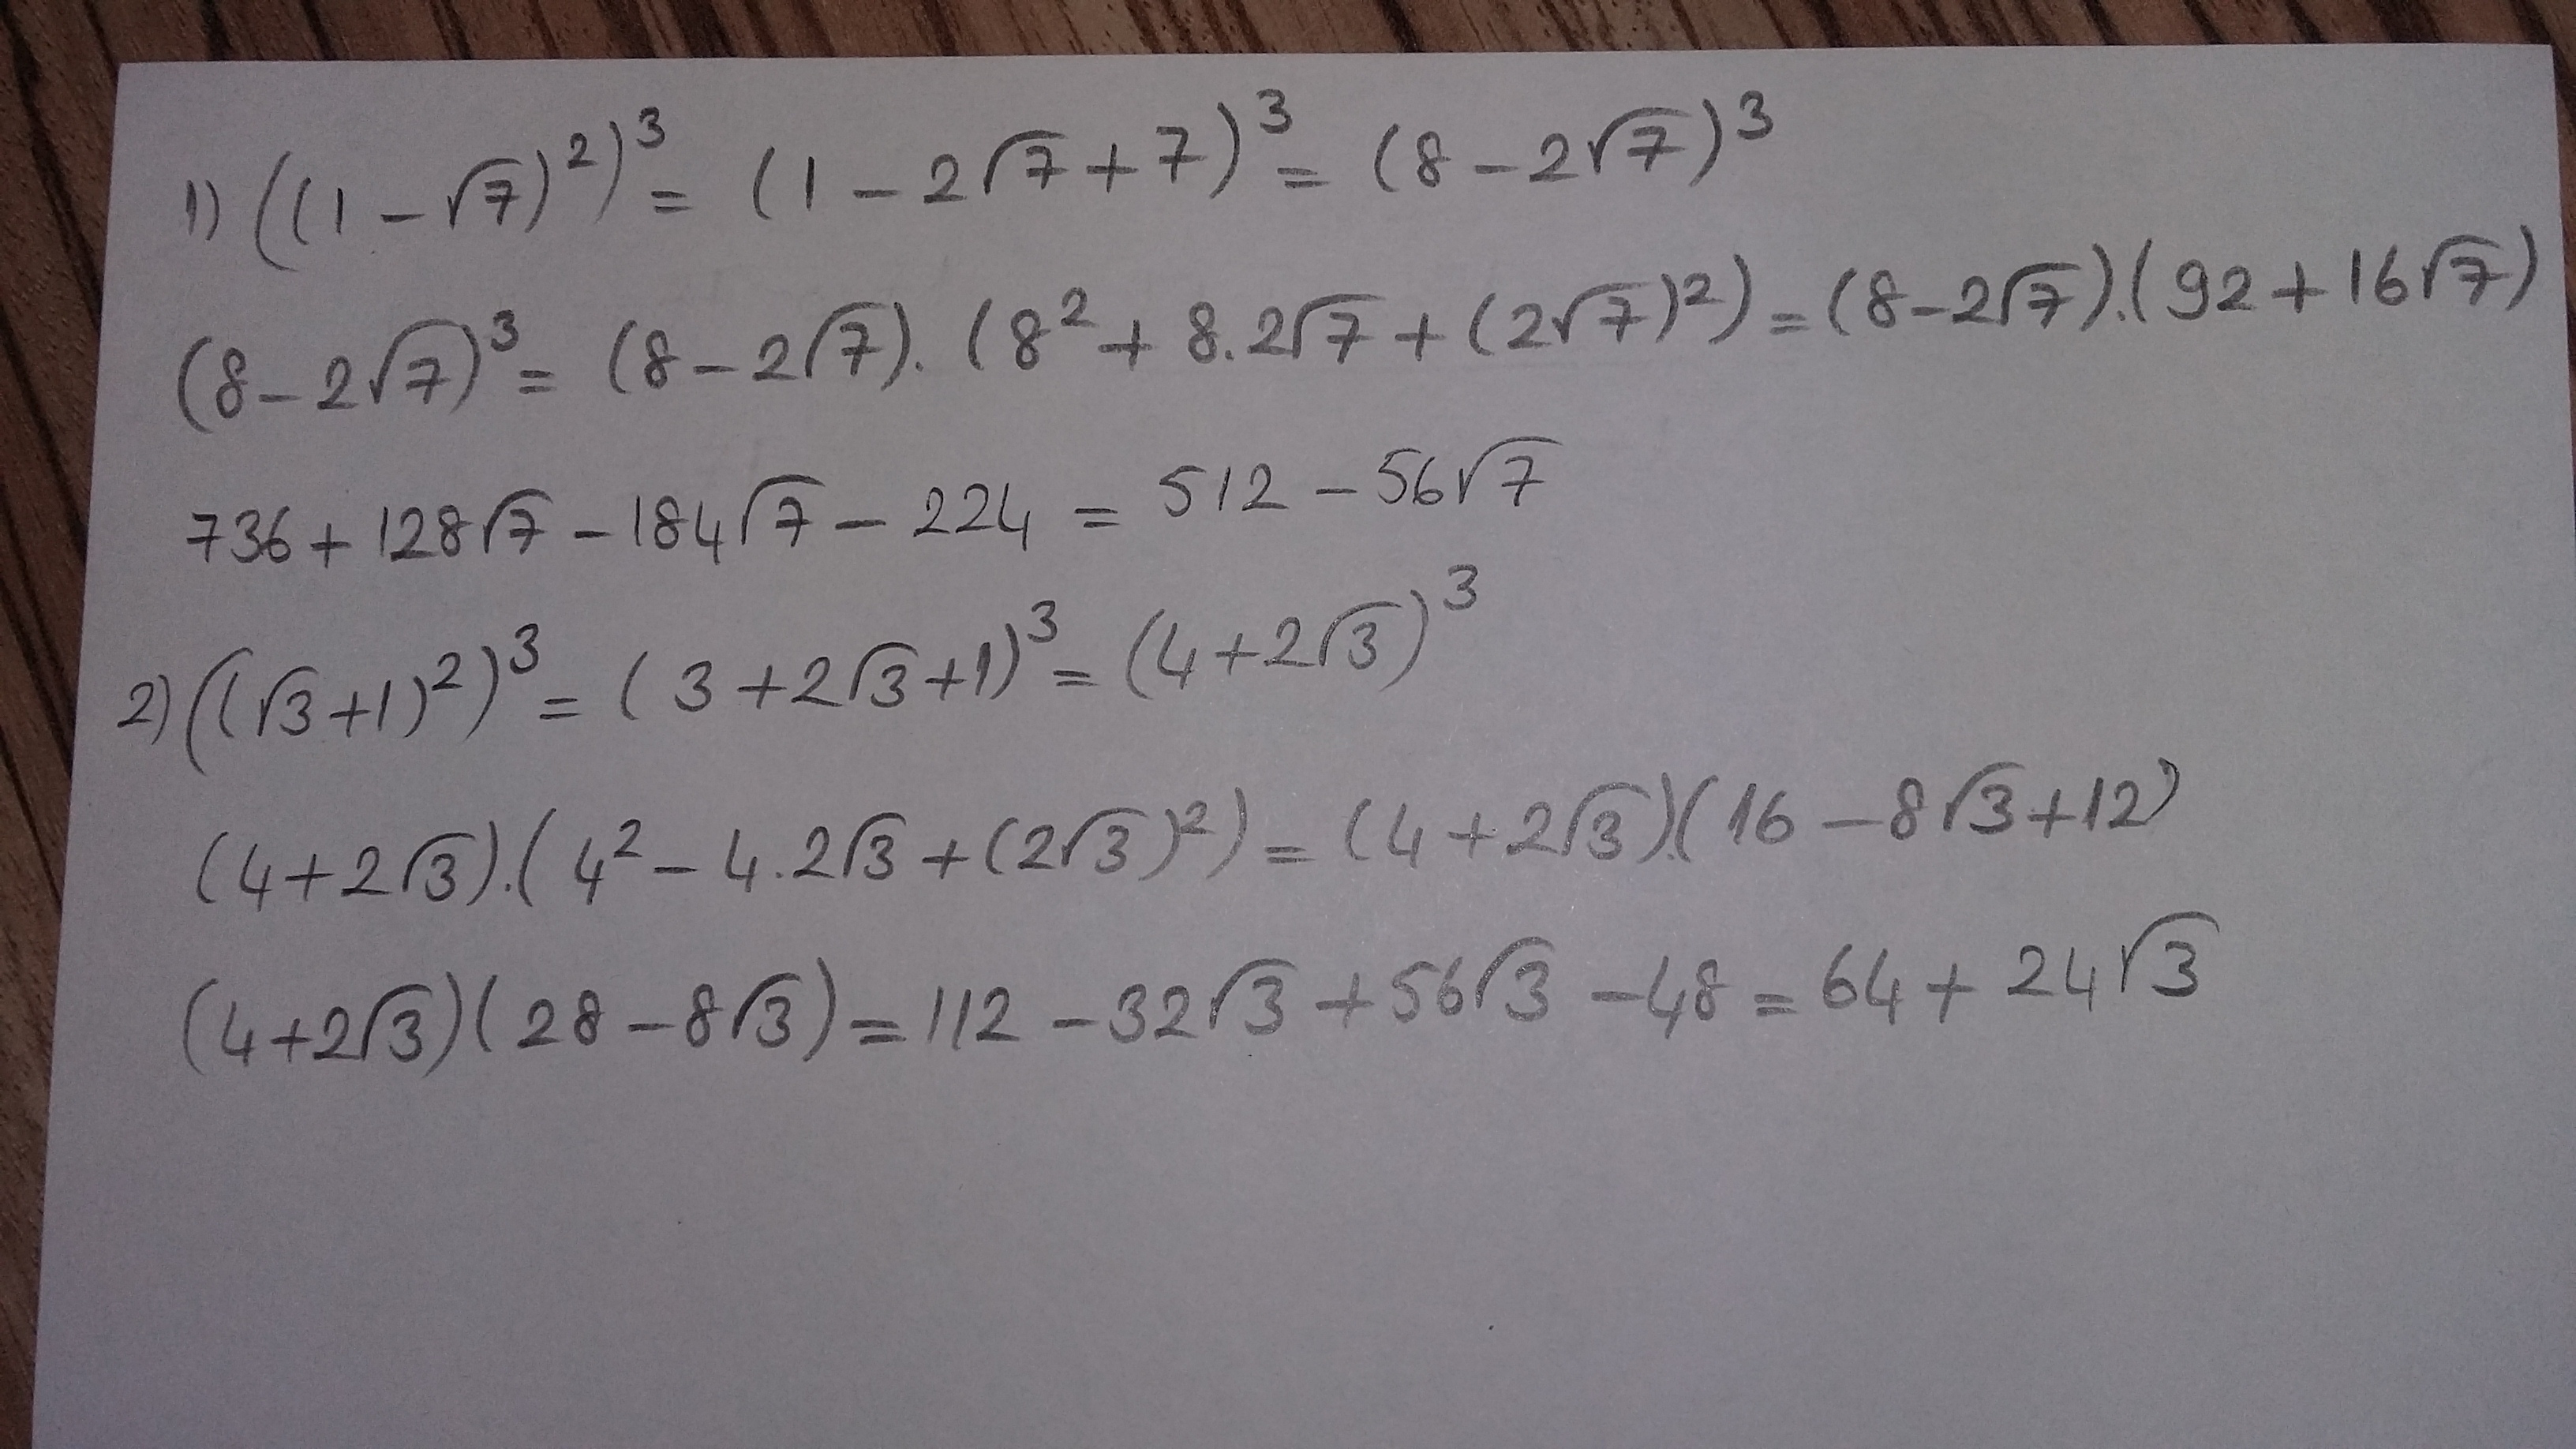 1) ((1-√7)²)³ = (1-2√7+7)³ = (8-2√7)³
(8-2√7)³ = (8-2√7).(8²+8.2√7+(2√7)²) = (8-2√7).(92+16√7)
736+128√7-184√7-224 = 512-56√7
2) ((√3+1)²)³ = (3+2√3+1)³ = (4+2√3)³
(4+2√3).(4²-4.2√3+(2√3)²) = (4+2√3).(16-8√3+12)
(4+2√3)(28-8√3) = 112-32√3+56√3-48 = 64+24√3